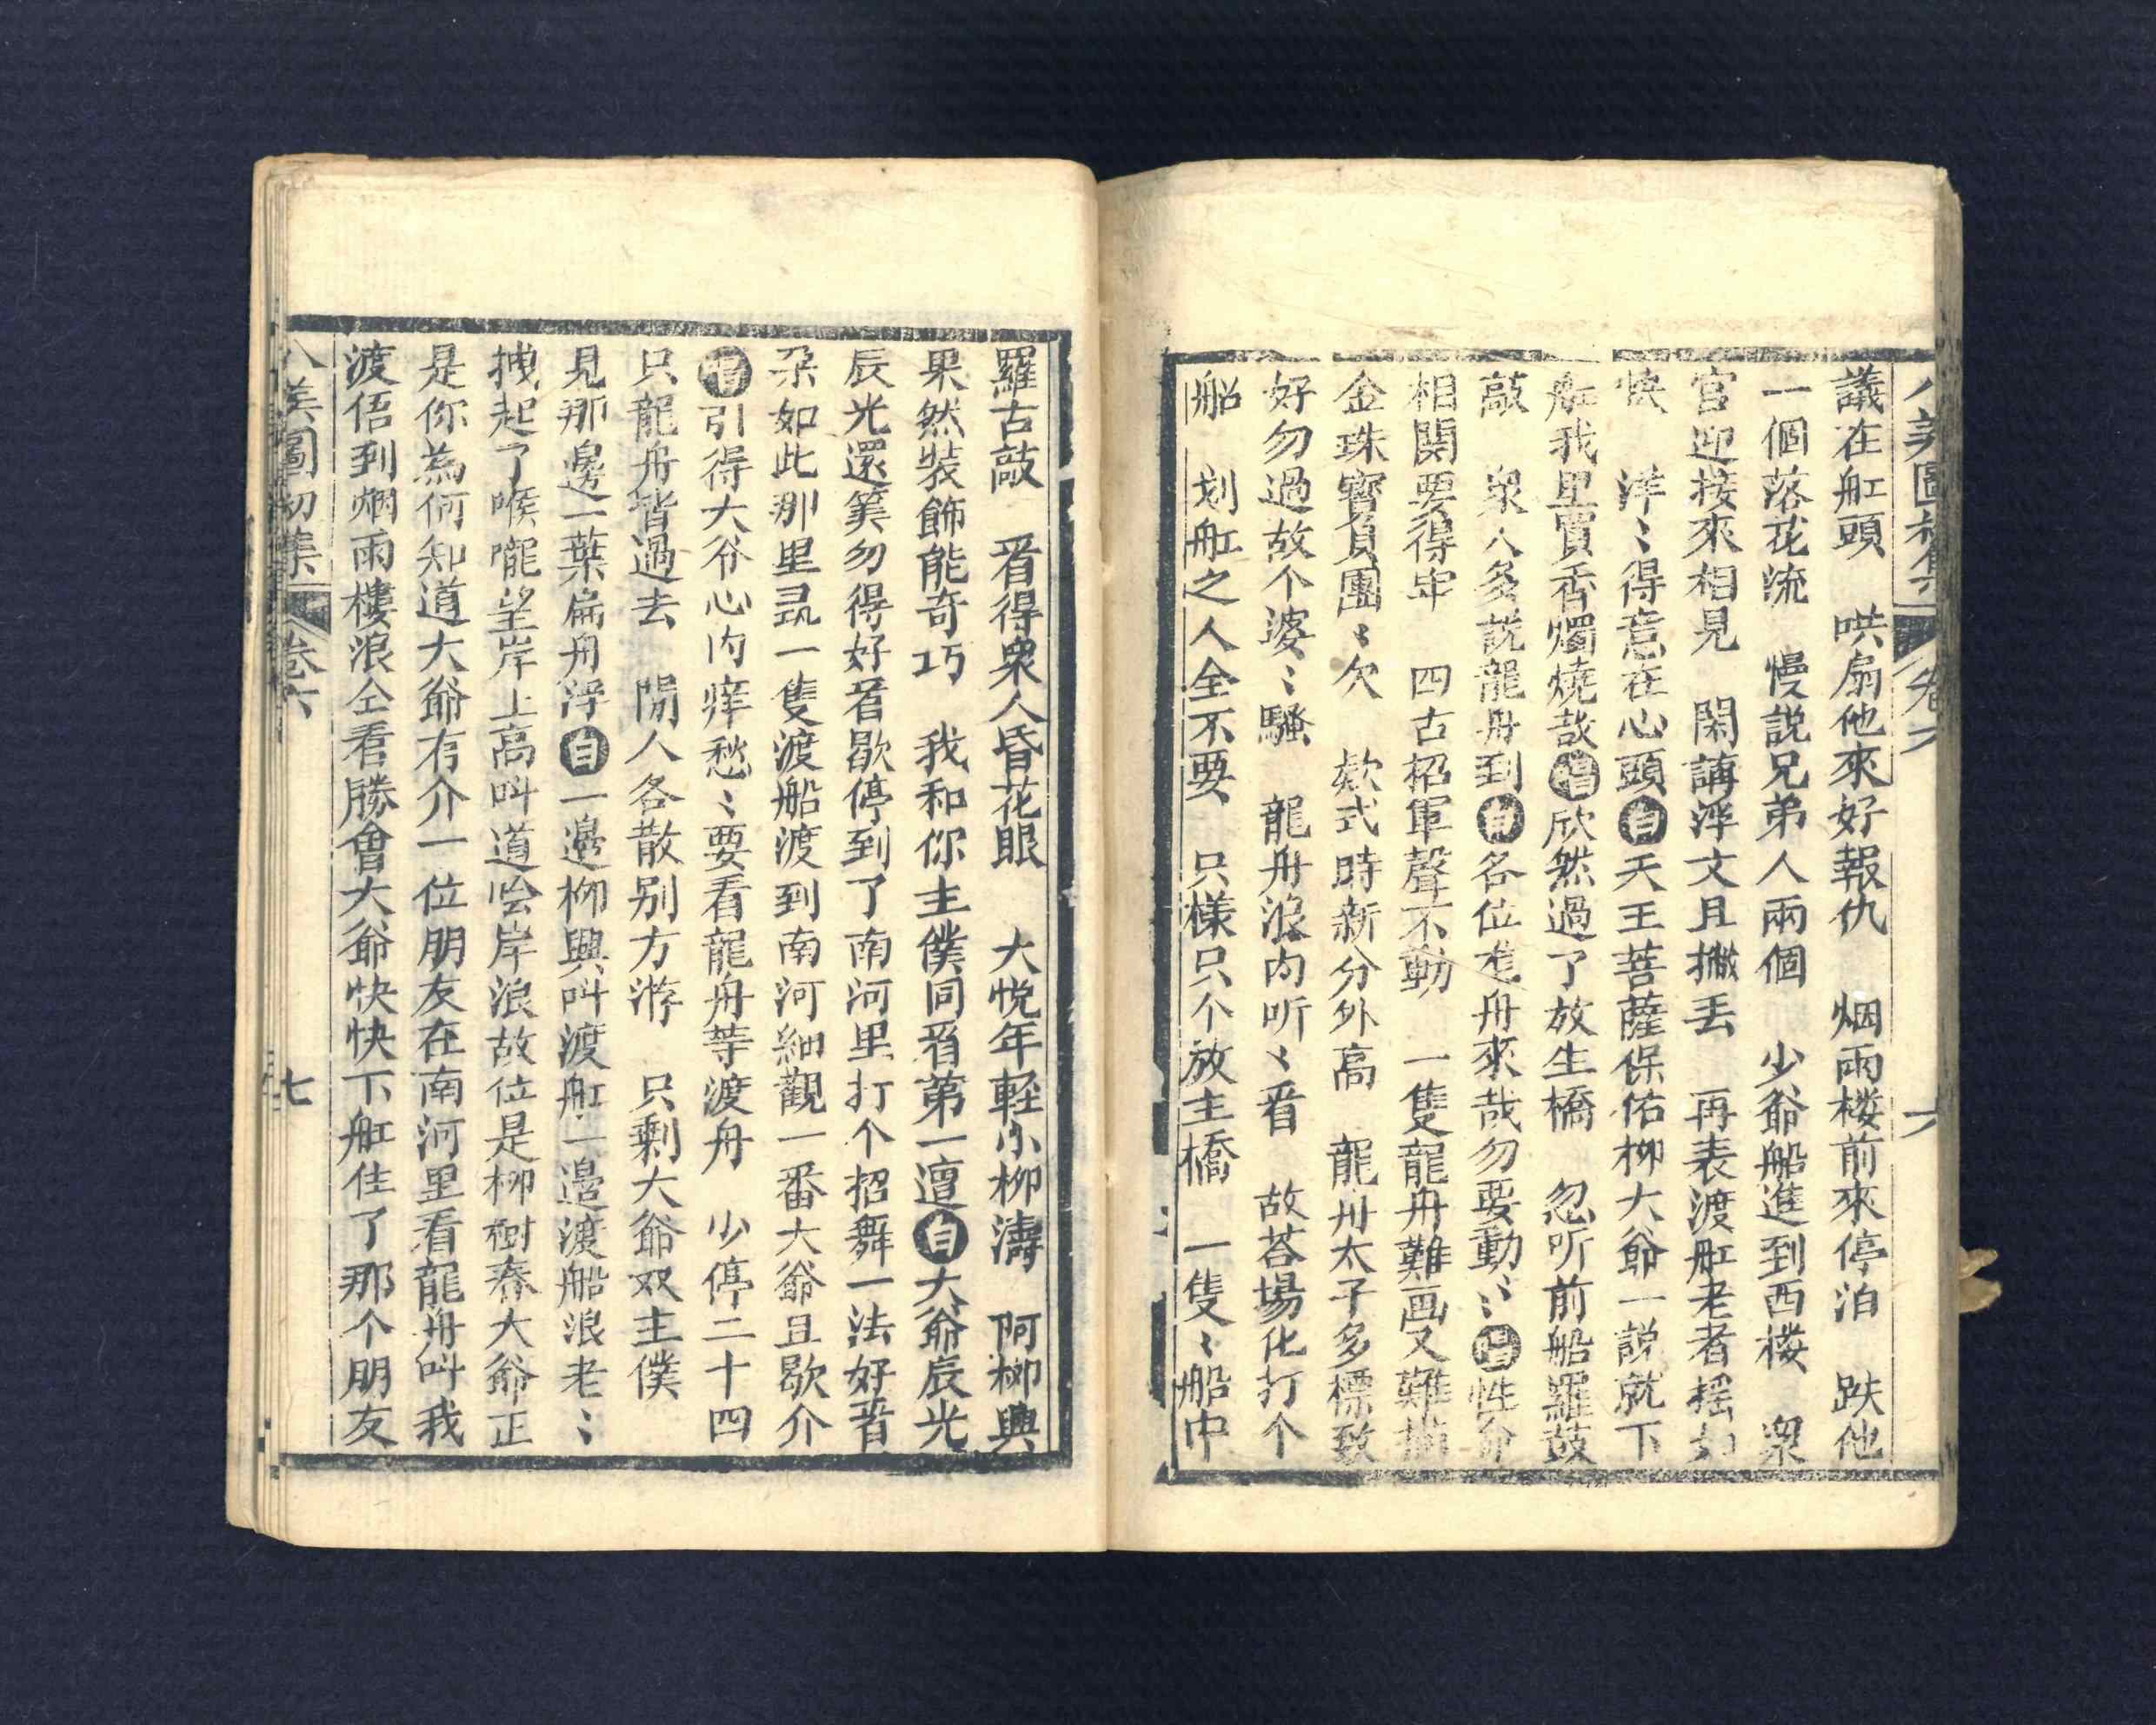 八美圖初集 卷六 六
議在舡頭 哄扇他來好報仇 烟雨楼前來停泊 跌他
一個落花流 慢説兄弟人兩個 少爺船進到西楼 眾
官迎接來相見 閑講浮文且撇丟 再表渡舡老者摇如
快 洋〻得意在心頭 白 天王菩薩保佑柳大爺一説就下
舡我里買香燭燒哉 唱 欣然過了放生橋 忽听前船羅鼓
敲 眾人多説龍舟到 白 各位進舟來哉勿要動〻 唱 性命
相関要得牢 四古招軍聲不動 一隻龍舟難画又難描
金珠寶貝團〻欠 欵式時新分外高 龍舟太子多標致
好勿過故个婆〻騷 龍舟浪内听〻看 故荅場化打个
船 划舡之人全不要 只樣只个放主橋 一隻〻船中
羅古敲 看得衆人昏花眼 大悦年軽小柳濤 阿柳興
果然裝飾能奇巧 我和你主僕同看第一遭 白 大爺辰光
辰光還筭勿得好看歇停到了南河里打个招舞一法好看
朶如此那里尋一隻渡船渡到南河細觀一番大爺且歇介
唱 引得大爷心内痒愁〻要看龍舟等渡舟 少停二十四
只龍舟皆過去 閒人各散别方游 只剩大爺双主僕
見那邊一葉扁舟浮 白 一邊柳興叫渡舡一邊渡船浪老〻
拽起了喉嚨望岸上高叫道唅岸浪故位是柳樹春大爺正
是你為何知道大爺有介一位朋友在南河里看龍舟叫我
渡俉到烟雨樓浪仝看勝會大爺快快下舡佳了那个朋友
八美圖初集 卷六 七